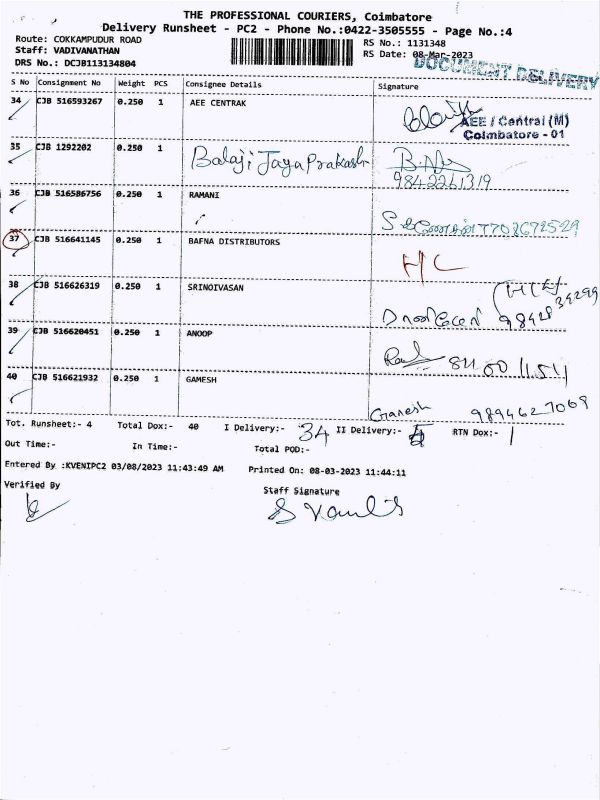 THE PROFESSIONAL COURIERS, Coimbatore
Delivery Runsheet - PC2 - Phone No.:0422-3505555 - Page No.:4
Route: COKKAMPUDUR ROAD
RS No.: 1131348
Staff: VADIVANATHAN
RS Date: 08-Mar-2023
DRS No.: DCJB113134804
DOCUMENT DELIVERY
S No Consignment No Weight PCS Consignee Details Signature
34 CJB 516593267 0.250 1 AEE CENTRAK
AEE / Central (M)
Coimbatore - 01
35 CJB 1292202 0.250 1 Balaji Jaya Prakash
9842261319
36 CJB 516586756 0.250 1 RAMANI
37 CJB 516641145 0.250 1 BAFNA DISTRIBUTORS
HC
38 CJB 516626319 0.250 1 SRINOIVASAN
39 CJB 516620451 0.250 1 ANOOP
40 CJB 516621932 0.250 1 GAMESH
Ganesh 9894627069
Tot. Runsheet:- 4 Total Dox:- 40 I Delivery:- 34 II Delivery:- RTN Dox:- 1
Out Time:- In Time:- Total POD:-
Entered By :KVENIPC2 03/08/2023 11:43:49 AM Printed On: 08-03-2023 11:44:11
Verified By Staff Signature